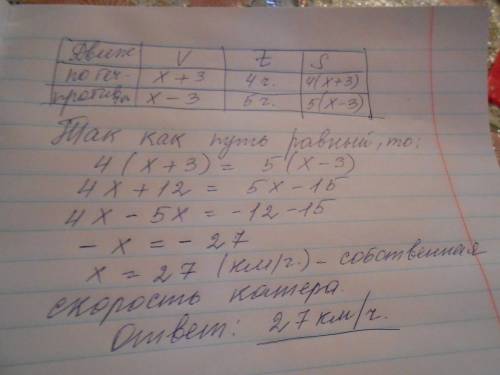 Движ V t S
по теч. x + 3 4 ч. 4(x+3)
против x - 3 5 ч. 5(x-3)
Так как путь равный, то:
4(x+3) = 5(x-3)
4x + 12 = 5x - 15
4x - 5x = -12 - 15
-x = -27
x = 27 (км/ч.) - собственная
скорость катера.
Ответ: 27 км/ч.